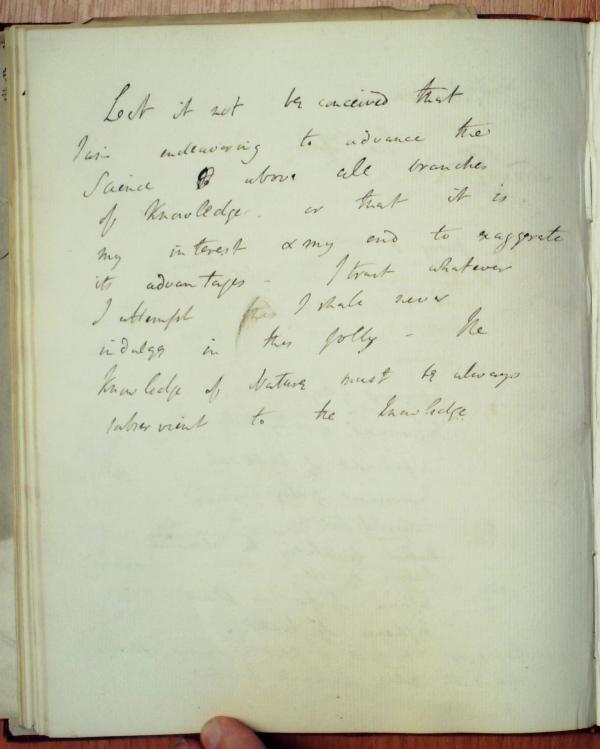 Let it not be conceived that
I am endeavoring to advance the
Science above all branches
of Knowledge. or that it is
my interest & my end to exaggerate
its advantages - I trust whatever
I attempt I shall never
indulge in this folly - The
Knowledge of Nature must be always
subservient to the Knowledge